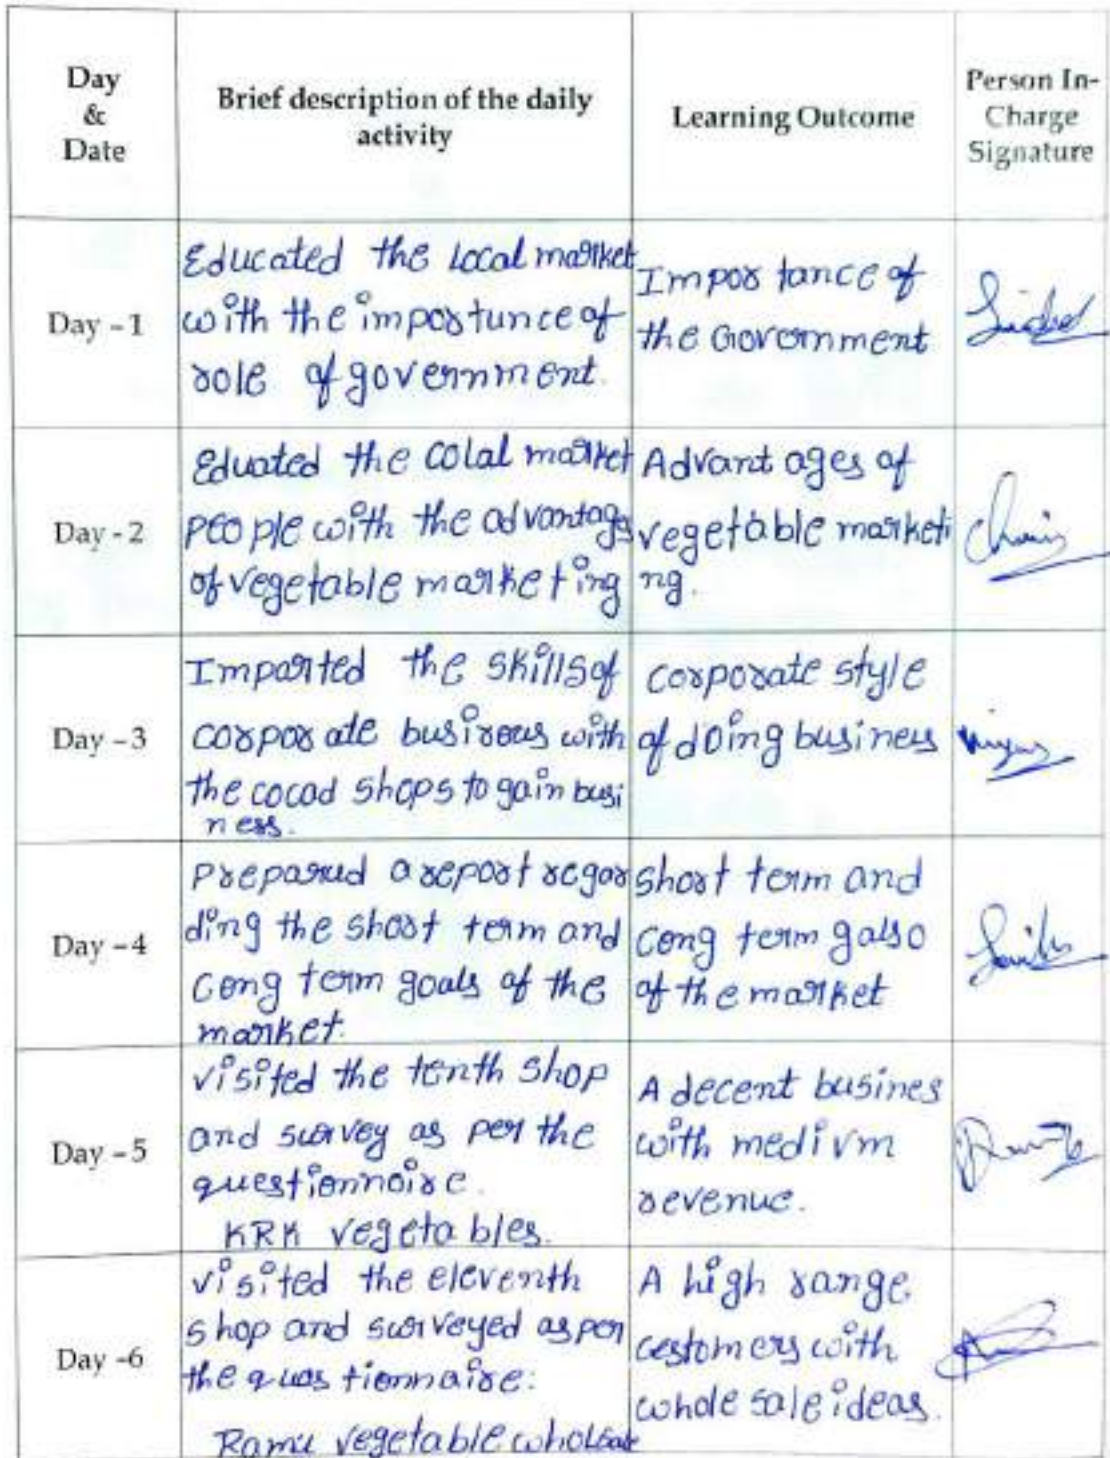 Day
&
Date
Brief description of the daily
activity
Learning Outcome
Person In-
Charge
Signature
Day - 1
Educated the Local market
with the importunce of
role of government.
Importance of
the Government
Day - 2
Eduated the Colal market
people with the advantages
of vegetable marketing
Advantages of
vegetable marketi
ng.
Day - 3
Imparted the skills of
corporate busirous with
the cocad shops to gain busi
ness.
corporate style
of doing business
Day - 4
Prepared a report regar
ding the short term and
Cong term goals of the
market.
short term and
Cong term galso
of the market
Day - 5
visited the tenth shop
and survey as per the
questionnaire.
KRK vegetables.
A decent busines
with medivm
revenue.
Day -6
visited the eleventh
shop and surveyed as per
the quastionnaire:
Ramu vegetable wholsale
A high range
cestomers with
whole sale ideas.